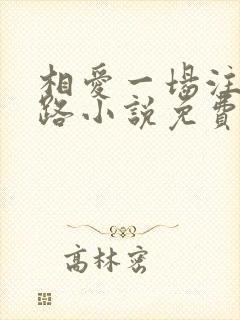 相愛一場注
路小說免費
高林密